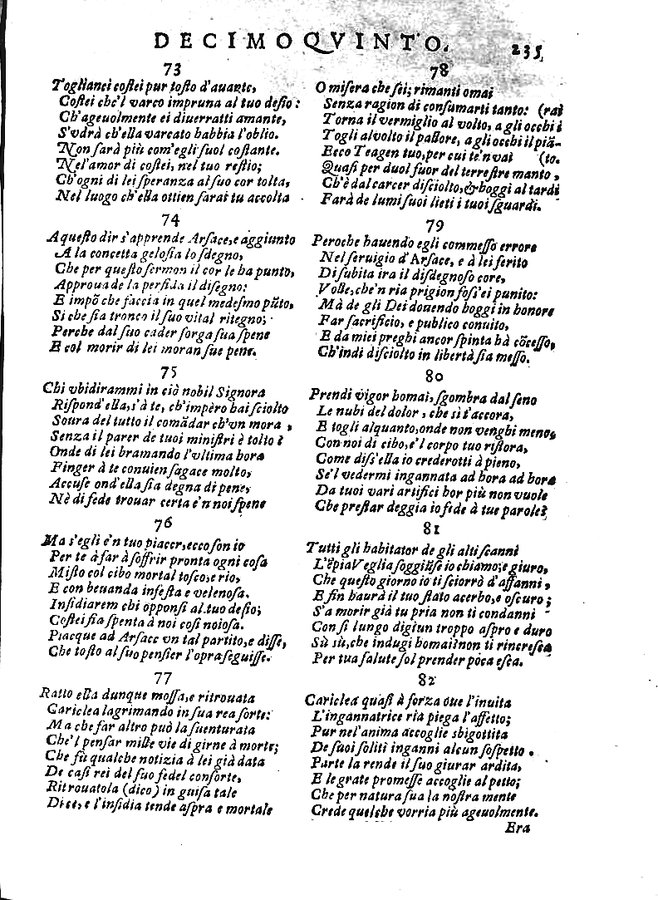 DECIMOQVINTO. 235
73
Toglianci costei pur tosto d'auante,
Costei che'l varco impruna al tuo desio:
Ch'ageuolmente ei diuerratti amante,
S'vdrà ch'ella varcato habbia l'oblio.
Non sarà più com'egli suol costante.
Nel'amor di costei, nel tuo restio;
Ch'ogni di lei speranza al suo cor tolta,
Nel luogo ch'ella ottien sarai tu accolta
74
A questo dir s'apprende Arsace, e aggiunto
A la concetta gelosia lo sdegno,
Che per questo sermon il cor le ha punto,
Approua de la perfida il disegno:
E impõ che faccia in quel medesmo pũto,
Si che sia tronco il suo vital ritegno;
Perche dal suo cader sorga sua spene
E col morir di lei moran sue pene.
75
Chi vbidirammi in ciò nobil Signora
Rispond'ella, s'à te, ch'impèro hai sciolto
Soura del tutto il comãdar ch'vn mora,
Senza il parer de tuoi ministri è tolto?
Onde di lei bramando l'vltima hora
Finger à te conuien sagace molto,
Accuse ond'ella sia degna di pene;
Nè di fede trouar certa è'n noi spene
76
Ma s'egli è'n tuo piacer, ecco son io
Per te à far à soffrir pronta ogni cosa
Misto col cibo mortal tosco, e rio,
E con beuanda infesta e velenosa.
Insidiarem chi opponsi al tuo desio;
Costei sia spenta à noi così noiosa.
Piacque ad Arsace vn tal partito, e disse,
Che tosto al suo pensier l'opra seguisse.
77
Ratto ella dunque mossa, e ritrouata
Cariclea lagrimando in sua rea sorte:
Ma che far altro può la suenturata
Che'l pensar mille vie di girne à morte;
Che sù qualche notizia à lei già data
De casi rei del suo fedel consorte,
Ritrouatola (dico) in guisa tale
Dice, e l'insidia tende aspra e mortale
78
O misera che sei; rimanti omai
Senza ragion di consumarti tanto: (rai
Torna il vermiglio al volto, a gli occhi i
Togli al volto il pallore, a gli occhi il piã-
Ecco Teagen tuo, per cui te'n vai (to.
Quasi per duol fuor del terrestre manto,
Ch'è dal carcer disciolto, & hoggi al tardi
Farà de lumi suoi lieti i tuoi sguardi.
79
Peroche hauendo egli commesso errore
Nel seruigio d'Arsace, e à lei ferito
Di subita ira il disdegnoso core,
Volle, che'n ria prigion foss'ei punito:
Mà de gli Dei douendo hoggi in honore
Far sacrificio, e publico conuito,
E da miei preghi ancor spinta hà cõcesso,
Ch'indi disciolto in libertà sia messo.
80
Prendi vigor homai, sgombra dal seno
Le nubi del dolor, che sì t'accora,
E togli alquanto, onde non venghi meno,
Con noi di cibo, e'l corpo tuo ristora,
Come diss'ella io crederotti à pieno,
Se'l vedermi ingannata ad hora ad hora
Da tuoi vari artifici hor più non vuole
Che prestar deggia io fede à tue parole?
81
Tutti gli habitator de gli alti scanni
L'ẽpia Veglia soggiũse io chiamo; e giuro,
Che questo giorno io ti sciorrò d'affanni,
E fin haurà il tuo stato acerbo, e oscuro;
S'a morir già tu pria non ti condanni
Con sì lungo digiun troppo aspro e duro
Sù sù, che indugi homai? non ti rincresca
Per tua salute sol prender pòca esca.
82
Cariclea quasi à forza oue l'inuita
L'ingannatrice ria piega l'affetto;
Pur nel'anima accoglie sbigottita
De suoi soliti inganni alcun sospetto.
Parte la rende il suo giurar ardita,
E le grate promesse accoglie al petto;
Che per natura sua la nostra mente
Crede quel che vorria più ageuolmente.
Era